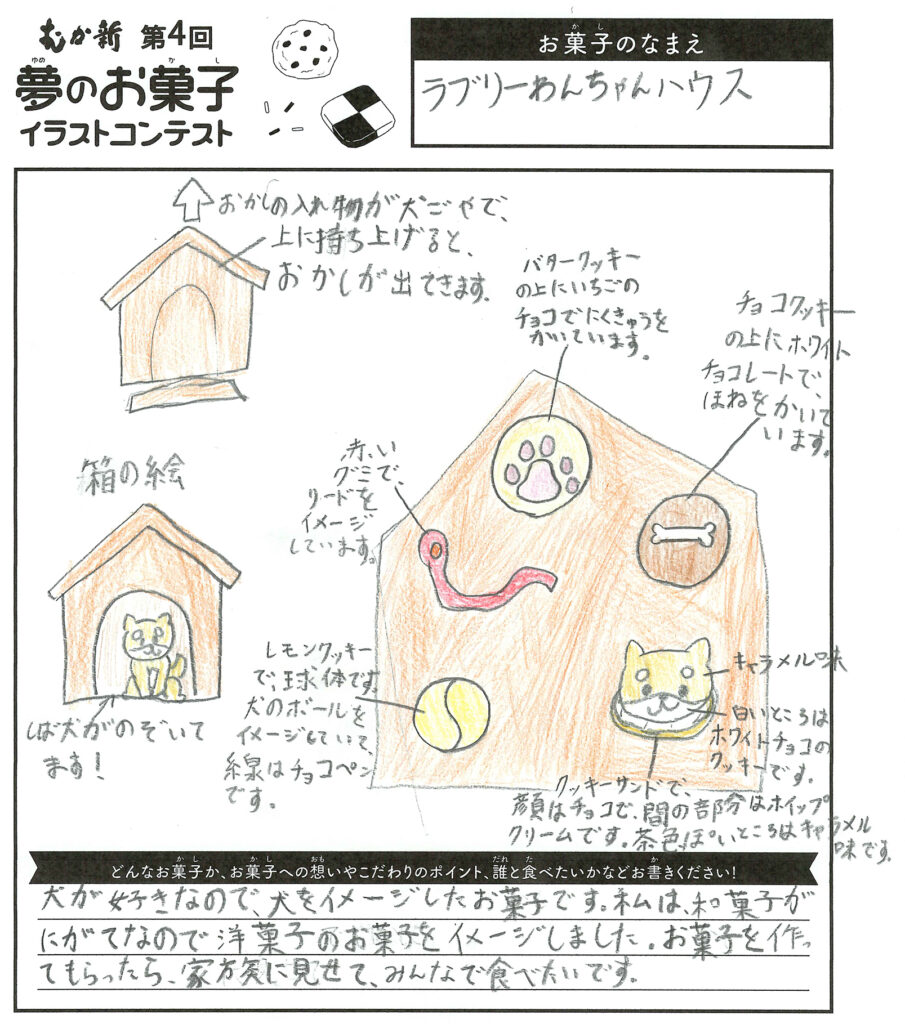 むか新 第4回
夢のお菓子
ゆめ かし
イラストコンテスト
お菓子のなまえ
かし
ラブリーわんちゃんハウス
おかしの入れ物が犬ごやで、
上に持ち上げると、
おかしが出てきます。
バタークッキー
の上にいちごの
チョコでにくきゅうを
かいています。
チョコクッキー
の上にホワイト
チョコレートで、
ほねをかいて
います。
箱の絵
赤い
グミで、
リードを
イメージ
しています。
しば犬がのぞいて
ます!
レモンクッキー
で、球体です。
犬のボールを
イメージしていて、
線はチョコペン
です。
キャラメル味
白いところは
ホワイトチョコの
クッキーです。
クッキーサンドで、
顔はチョコで、間の部分はホイップ
クリームです。茶色っぽいところはキャラメル
味です。
どんなお菓子か、お菓子への想いやこだわりのポイント、誰と食べたいかなどお書きください!
かし かし おも だれ た か
犬が好きなので、犬をイメージしたお菓子です。私は、和菓子が
にがてなので洋菓子のお菓子をイメージしました。お菓子を作っ
てもらったら、家族に見せて、みんなで食べたいです。